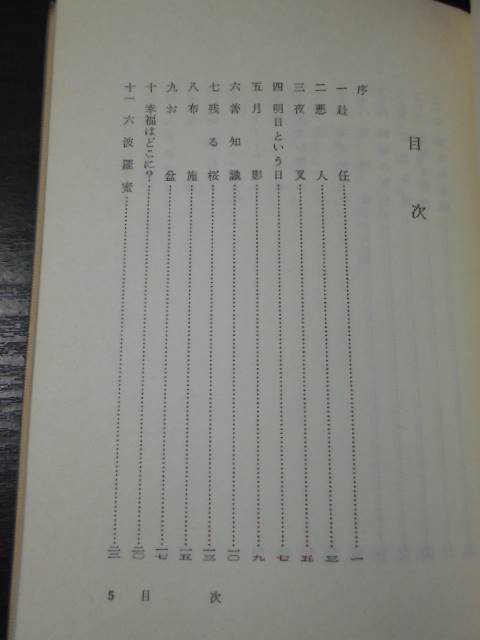 目次
序
一 赴任……一
二 悪人……三
三 夜叉……五
四 明日という日……七
五 月影……九
六 善知識……一〇
七 残る桜……一三
八 布施……一五
九 お盆……一七
十 幸福はどこに?……二〇
十一 六波羅蜜……二三
5 目次